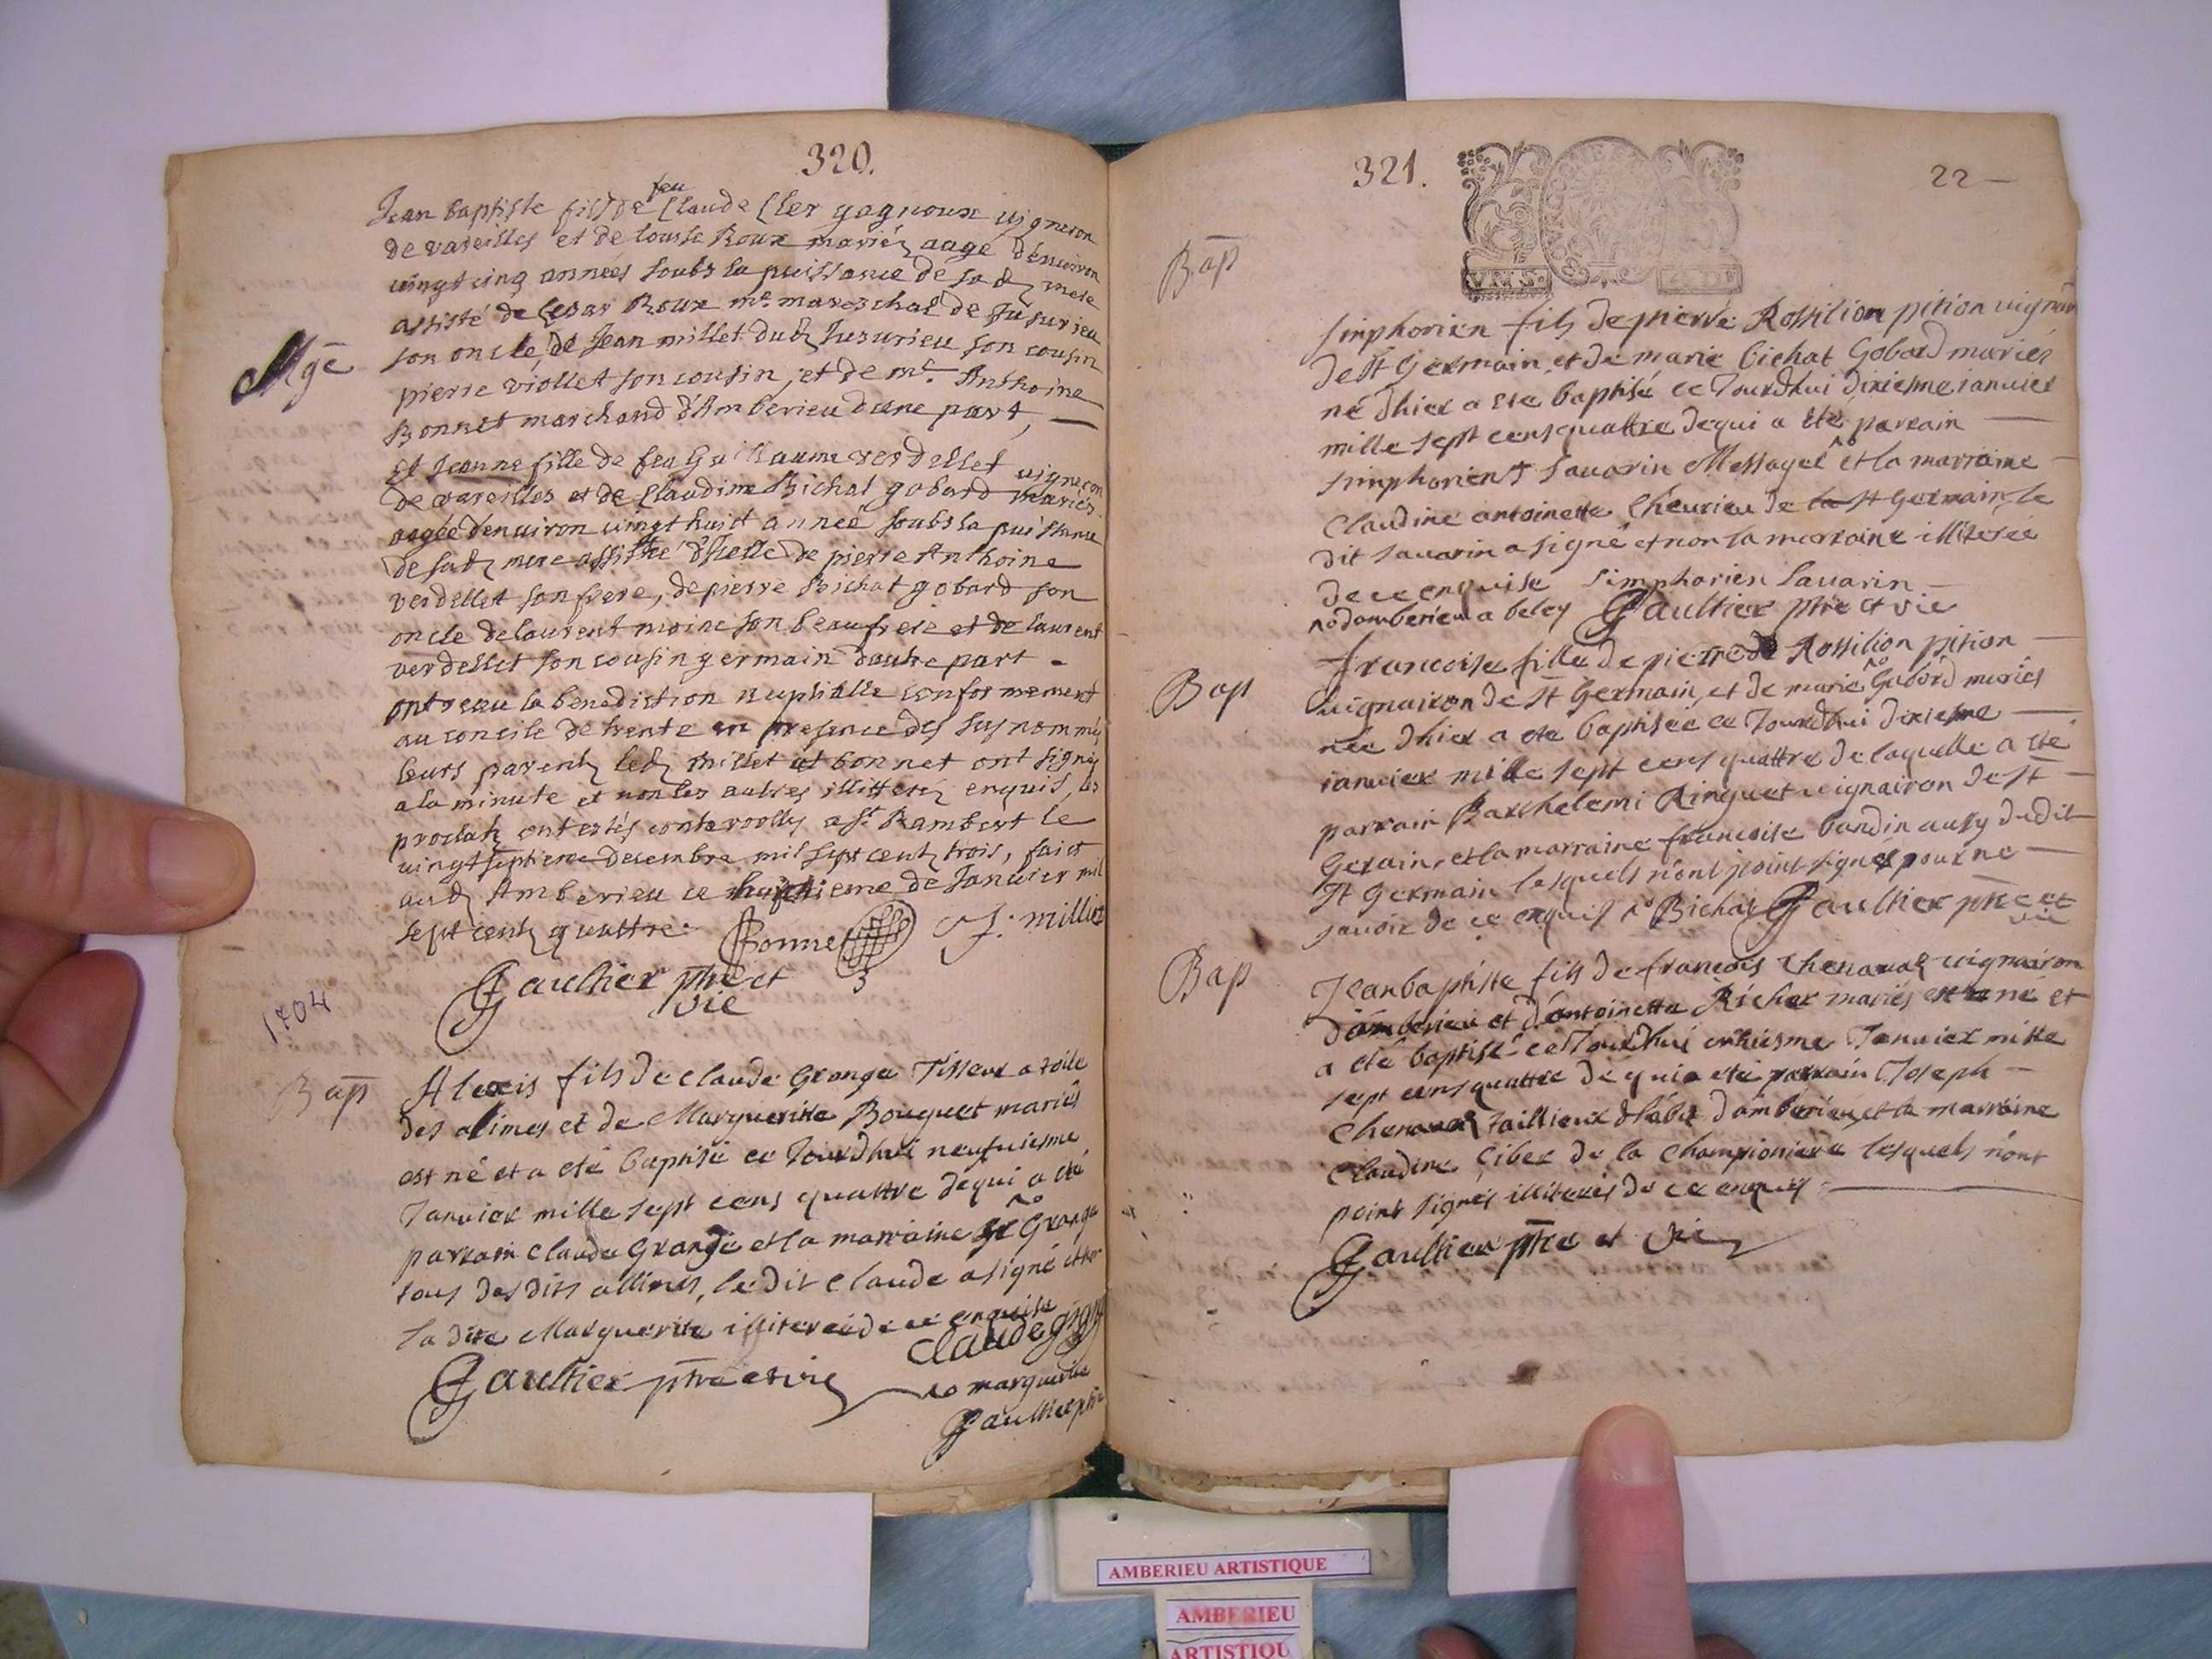 320.
Jean baptiste fils de feu Claude Cler gagnoux vigneron
de vareilles et de Louise Roux mariés aagé d'environ
vingt cinq années soubs la puissance de sad mere
assisté de Cesar Roux me mareschal de Jusurieu
Mge
son oncle, de Jean millet dud Jusurieu son cousin
pierre viollet son cousin, et de me. Anthoine
Bonnet marchand d'Amberieu d'une part,
Et Jeanne fille de feu Guillaume verdellet vigneron
de vareilles et de Claudine Bichat gobard mariés
aagée denviron vingt huict année soubs la puissance
de sad mere assistée d'Icelle de pierre Anthoine
verdellet son frere, de pierre Bichat gobard son
oncle de laurent moine son beaufrere et de laurent
verdellet son cousin germain dautre part.
ont receu la benediction nuptialle conformement
au concile de trente en presence des susnommés
leurs parents led millet et bonnet ont signés
a la minute et non les autres illitterés enquis, les
proclats ont estés controolly a St. Rambert le
vingt septieme decembre mil sept cents trois, faict
aud Amberieu ce huictieme de Janvier mil
sept cents quattre.
Bonnet J. millet
Gaultier ptre et
vic
1704
Bap
Alexis fils de claude Grange Tisseur a toile
des alimes et de Marguerite Bouquet mariés
est né et a eté baptisé ce Jourdhui neufuiesme
Januier mille sept cens quattre de qui a eté
parrain claude Grange et la marraine no Grange
tous des dits allimes, le dit claude a signé et non
la dite Marguerite illiterée de ce enquise
claude
Gaultier ptre et vic
no marguerite
Gaultier ptre
321.
22
Bap
Simphorien fils de pierre Rossilion pition vignairon
de St Germain et de marie bichat Gobard mariés
né dhier a ete baptisé ce Jourdhui dixiesme ianuier
mille sept cens quattre de qui a eté parrain
simphorien Sauarin Messager no et la marraine
Claudine antoinette Cheurieu de la St Germain, le
dit sauarin a signé et non la marraine illiterée
de ce enquise Simphorien Sauarin
no damberieu a beley Gaultier ptre et vic
Bap
francoise fille de pierre de Rossilion pition
vignairon de St Germain, et de marie no Gobord mariés
née dhier a eté baptisée ce Jourdhui dixiesme
ianuier mille sept cens quattre de laquelle a eté
parrain Barthelemi Ringuet vignairon de St
Gerain, et la marraine francoise bandin aussy dudit
St Germain lesquels n'ont point signés pour ne
savoir de ce enquis no Bichat Gaultier ptre et
vic
Bap
Jean baptiste fils de francois chenaual vignairon
damberieu et d'antoinette Richer mariés est né et
a eté baptisé ce Jourdhui onziesme Januier mille
sept cens quattre de qui a eté parrain Joseph
chenaual taillieur dhabit damberieu, et la marraine
claudine Ciber de la championiere lesquels n'ont
point signés illiterés de ce enquis
Gaultier ptre et vic
AMBERIEU ARTISTIQUE
AMBERIEU
ARTISTIQU